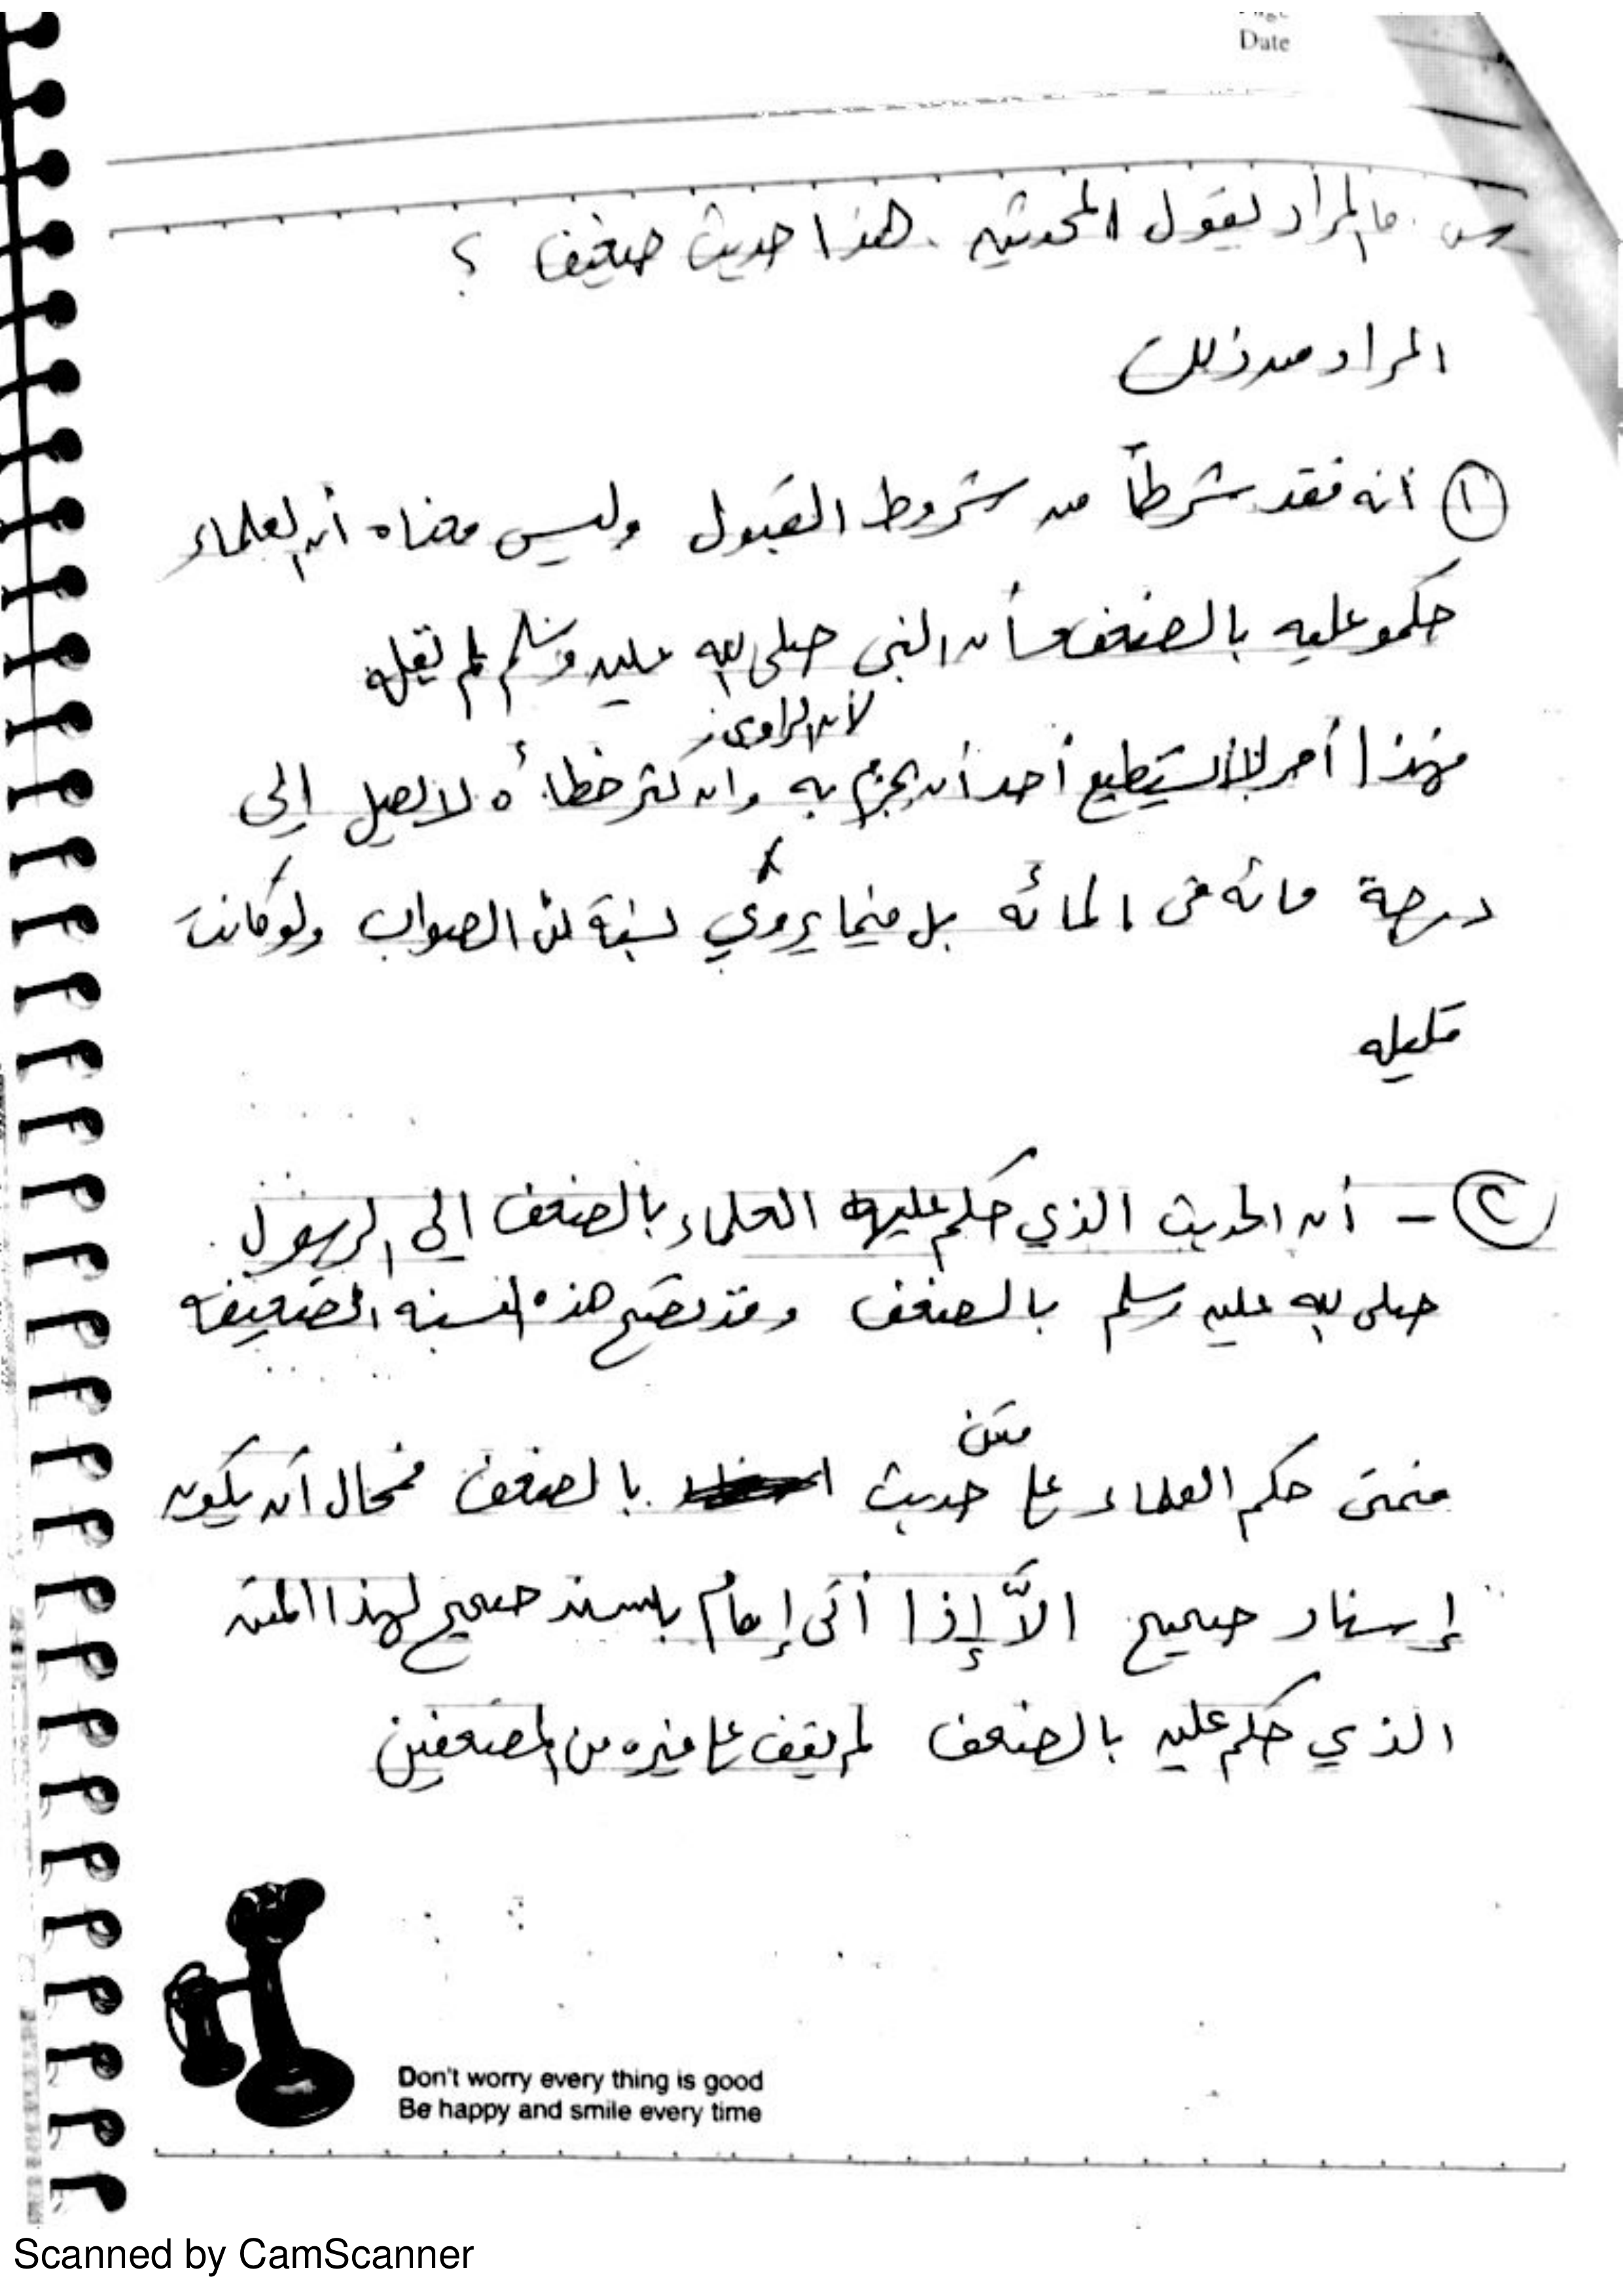 Date
س. ما المراد بقول المحدثين. هذا حديث ضعيف ؟
المراد من ذلك
① أنه فقد شرطاً من شروط القبول وليس معناه أن العلماء
حكمو عليه بالضعف أن النبي صلى الله عليه وسلم لم يقله
لأن الراوي
فهذا أمر لا يستطيع أحد أن يجزم به وان كثر خطأه لا يصل إلى
درجة مائه في المائه بل فيما يروي نسبة من الصواب ولو كانت
قليله
② - أن الحديث الذي حكم عليه العلماء بالضعف الى الرسول
صلى الله عليه وسلم بالضعف وقد تصح هذه النسبه الضعيفه
متن
فمتى حكم العلماء على حديث بالضعف فمحال أن يكون
إسناد صحيح الاّ إذا أتى إمام بسند صحيح لهذا المتن
الذي حكم عليه بالضعف لم يقف على غيره من المضعفين
Don't worry every thing is good
Be happy and smile every time
Scanned by CamScanner